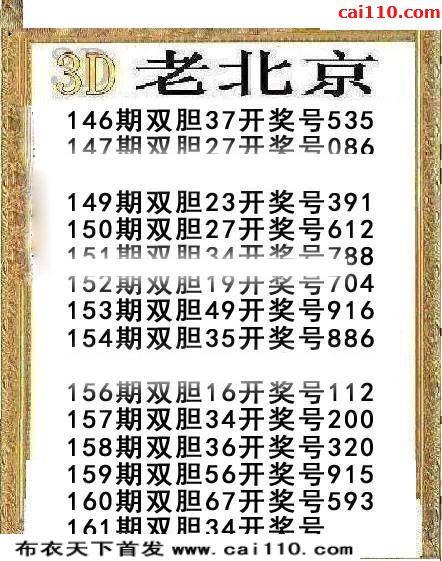 cai110.com
3D 老北京
146期双胆37开奖号535
147期双胆27开奖号086
149期双胆23开奖号391
150期双胆27开奖号612
151期双胆34开奖号788
152期双胆19开奖号704
153期双胆49开奖号916
154期双胆35开奖号886
156期双胆16开奖号112
157期双胆34开奖号200
158期双胆36开奖号320
159期双胆56开奖号915
160期双胆67开奖号593
161期双胆34开奖号
布衣天下首发 www.cai110.com